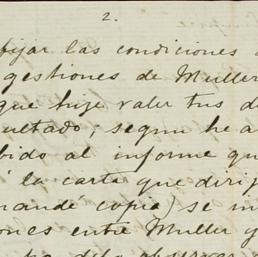 2.
fijar las condiciones
gestiones de Muller
que hize valer tus d
ultado, segun he a
bido al informe qu
la carta que dirij
mande copia) se in
ones entre Muller y